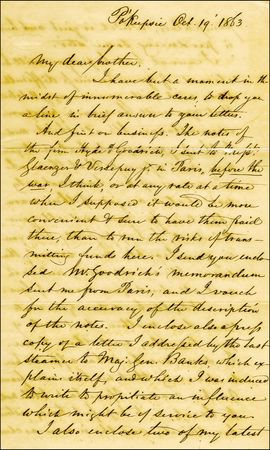 Po'Keepsie Oct. 19' 1863
My dear brother.
I have but a moment in the
midst of innumerable cares, to drop you
a line in brief answer to your letter.
And first on business. The notes of
the firm Hyde & Goodrich, I sent to
in Paris, before the
war, I think, or at any rate at a time
when I supposed it would be more
convenient & sure to have them paid
there, than to run the risks of trans-
mitting funds here. I send you enclo-
sed Mr. Goodrich's memorandum
sent me from Paris, and I vouch
for the accuracy of the description
of the notes. I inclose also a press
copy of a letter I addressed by the last
steamer to Maj. Gen. Banks, which ex-
plains itself, and which I was induced
to write to propitiate an influence
which might be of service to you.
I also enclose two of my latest